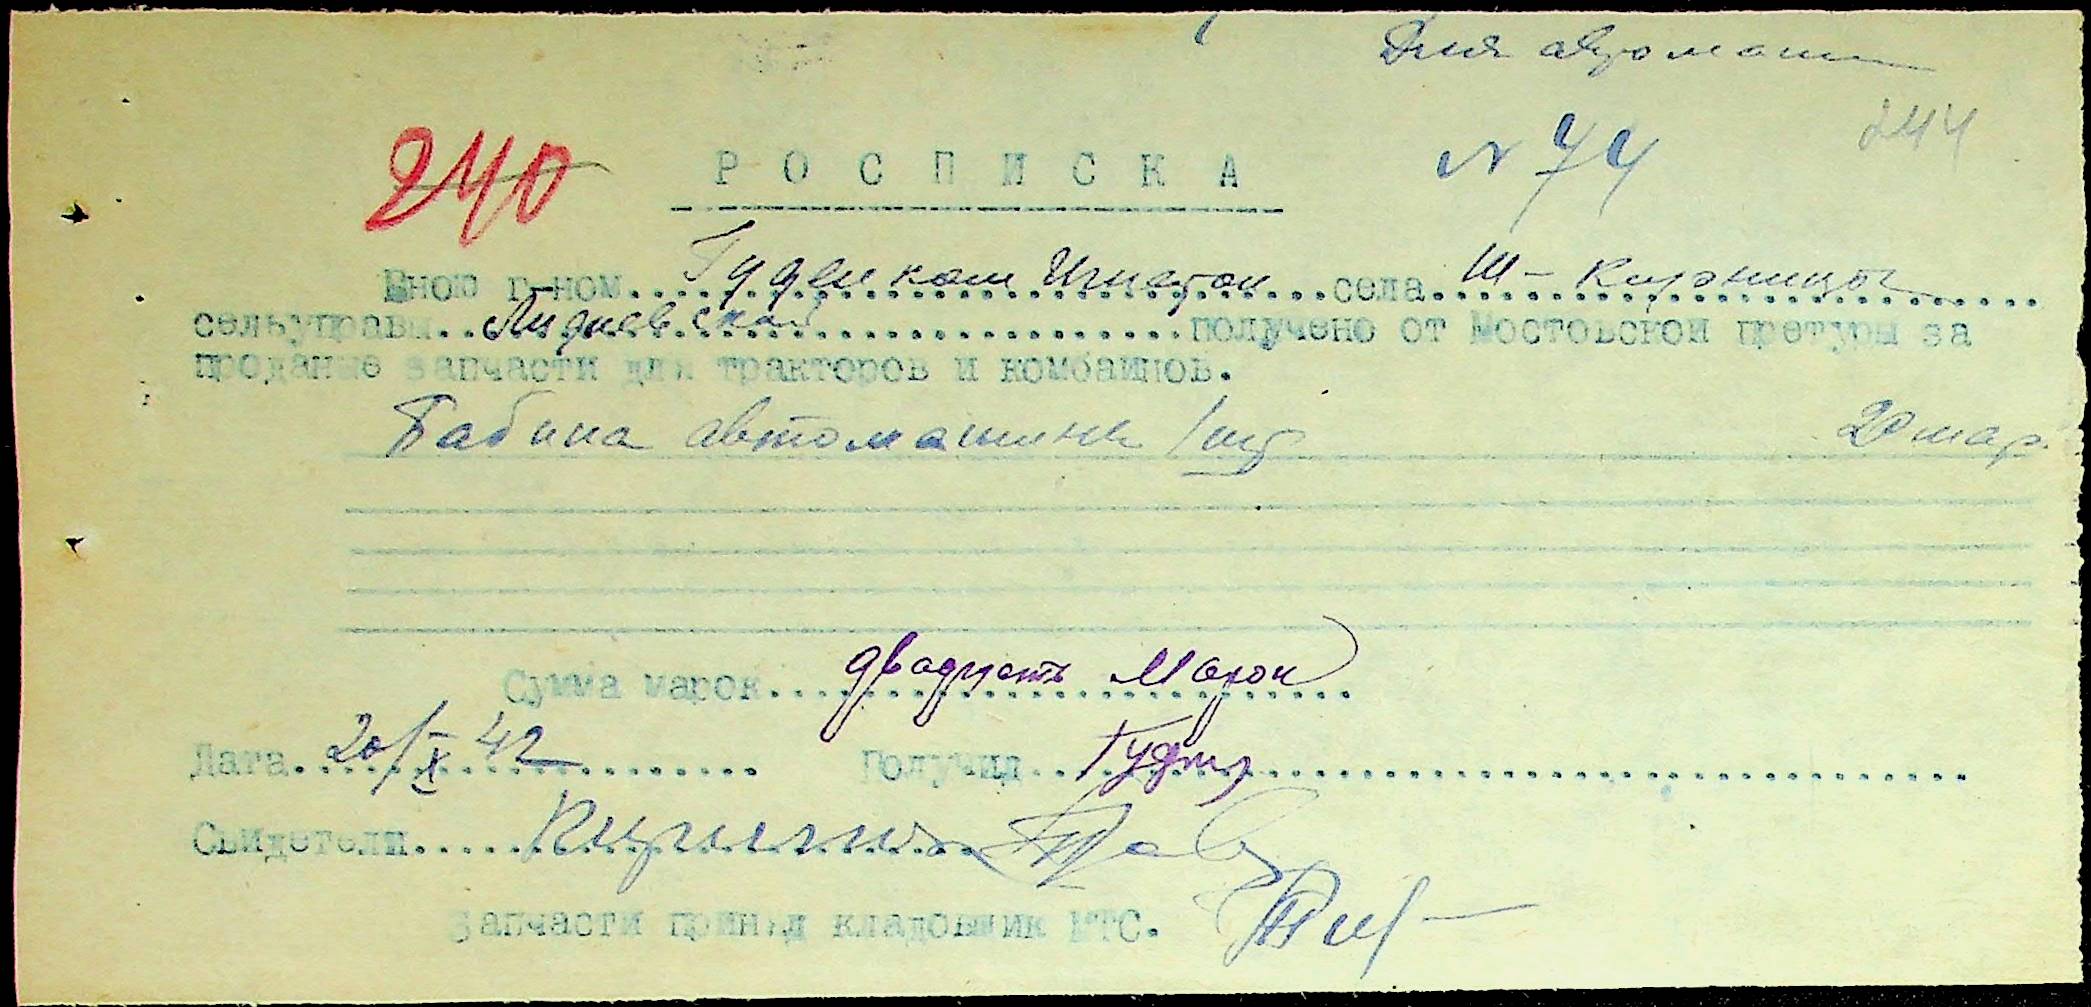 Для автомаш
244
240
РОСПИСКА
N 74
Мною г-ном Гуденком Игнатом села Ш-Кирници
сельуправы Лидиевской получено от Мостовской претуры за
проданые запчасти для тракторов и комбайнов.
Бабина автомашины 1 шт 20 мар.
Сумма марок двадцать Марок
Дата 20/X 42 Получил Гуден
Свидетели
Запчасти принял кладовщик МТС.